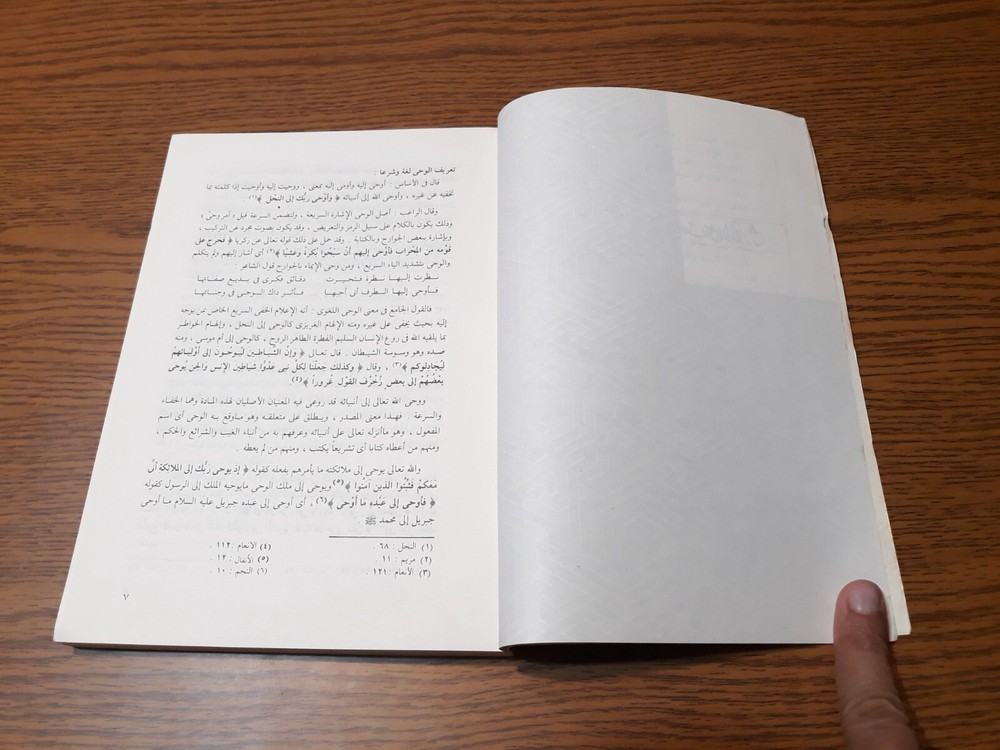 تعريف الوحى لغة وشرعا :
قال فى الأساس : أوحى إليه وأومى إليه بمعنى ، ووحيت إليه وأوحيت إذا كلمته بما
تخفيه عن غيره ، وأوحى الله إلى أنبيائه ﴿ وَأَوْحَى رَبُّكَ إلى النَّحْلِ ﴾(١)
وقال الراغب : أصل الوحى الإشارة السريعة ، ولتضمن السرعة قيل « أمر وحىّ »
وذلك يكون بالكلام على سبيل الرمز والتعريض ، وقد يكون بصوت مجرد عن التركيب ،
وبإشارة ببعض الجوارح وبالكتابة وقد حمل على ذلك قوله تعالى عن زكريا ﴿ فخرج على
قَوْمه من المِحْراب فأوْحى إليهم أنْ سَبِّحُوا بُكرةً وعشيًّا ﴾(٢) أى أشار إليهم ولم يتكلم
والوحى بتشديد الياء السريع ، ومن وحى الإيماء بالجوارح قول الشاعر :
نـظرت إليـهـا نـظرة فـتحيـرت دقائق فكرى فى بـديـع صفـاتهـا
فـأوحى إليهـا الـطرف أنى أحبهـا فـأثـر ذاك الـوحـى فى وجنـاتهـا
فالقول الجامع فى معنى الوحى اللغوى : أنه الإعلام الخفى السريع الخاص بمن يوجه
إليه بحيث يخفى على غيره ومنه الإلهام الغريزى كالوحى إلى النحل ، وإلهام الخواطر
بما يلقيه الله فى روع الإنسان السليم الفطرة الطاهر الروح ، كالوحى إلى أم موسى ، ومنه
ضده وهو وسوسة الشيطان . قال تعـالى ﴿ وإنّ الشّيـاطـين ليُوحـون إلى أوْليـائهمْ
ليُجادلوكم ﴾(٣) ، وقال ﴿ وكذلك جعلْنا لكلّ نبى عدُوًّا شياطين الإنس والجن يُوحى
بَعْضُهُمْ إلى بعض زُخْرُف القوْل غُروراً ﴾(٤)
ووحى الله تعالى إلى أنبيائه قد روعى فيه المعنيان الأصليان لهذه المادة وهما الخفاء
والسرعة . فهـذا معنى المصدر ، ويـطلق على متعلقـه وهو مـاوقع بـه الوحى أى اسم
المفعول ، وهو ماأنزله تعالى على أنبيائه وعرفهم به من أنباء الغيب والشرائع والحكم ،
ومنهم من أعطاه كتابا أى تشريعاً يكتب ، ومنهم من لم يعطه .
والله تعالى يوحى إلى ملائكته ما يأمرهم بفعله كقوله ﴿ إذ يوحى ربُّك إلى الملائكة أنّى
مَعَكمْ فَثَبِّتُوا الذين آمَنُوا ﴾(٥) ويوحى إلى ملك الوحى مايوحيه الملك إلى الرسول كقوله
﴿ فأوحى إلى عَبْده مَا أوْحَى ﴾(٦) ، أى أوحى إلى عبده جبريل عليه السلام ما أوحى
جبريل إلى محمد ﷺ .
(١) النحل : ٦٨ .
(٢) مريم : ١١ .
(٣) الأنعام : ١٢١ .
(٤) الأنعام : ١١٢ .
(٥) الأنفال : ١٢ .
(٦) النجم : ١٠ .
٧